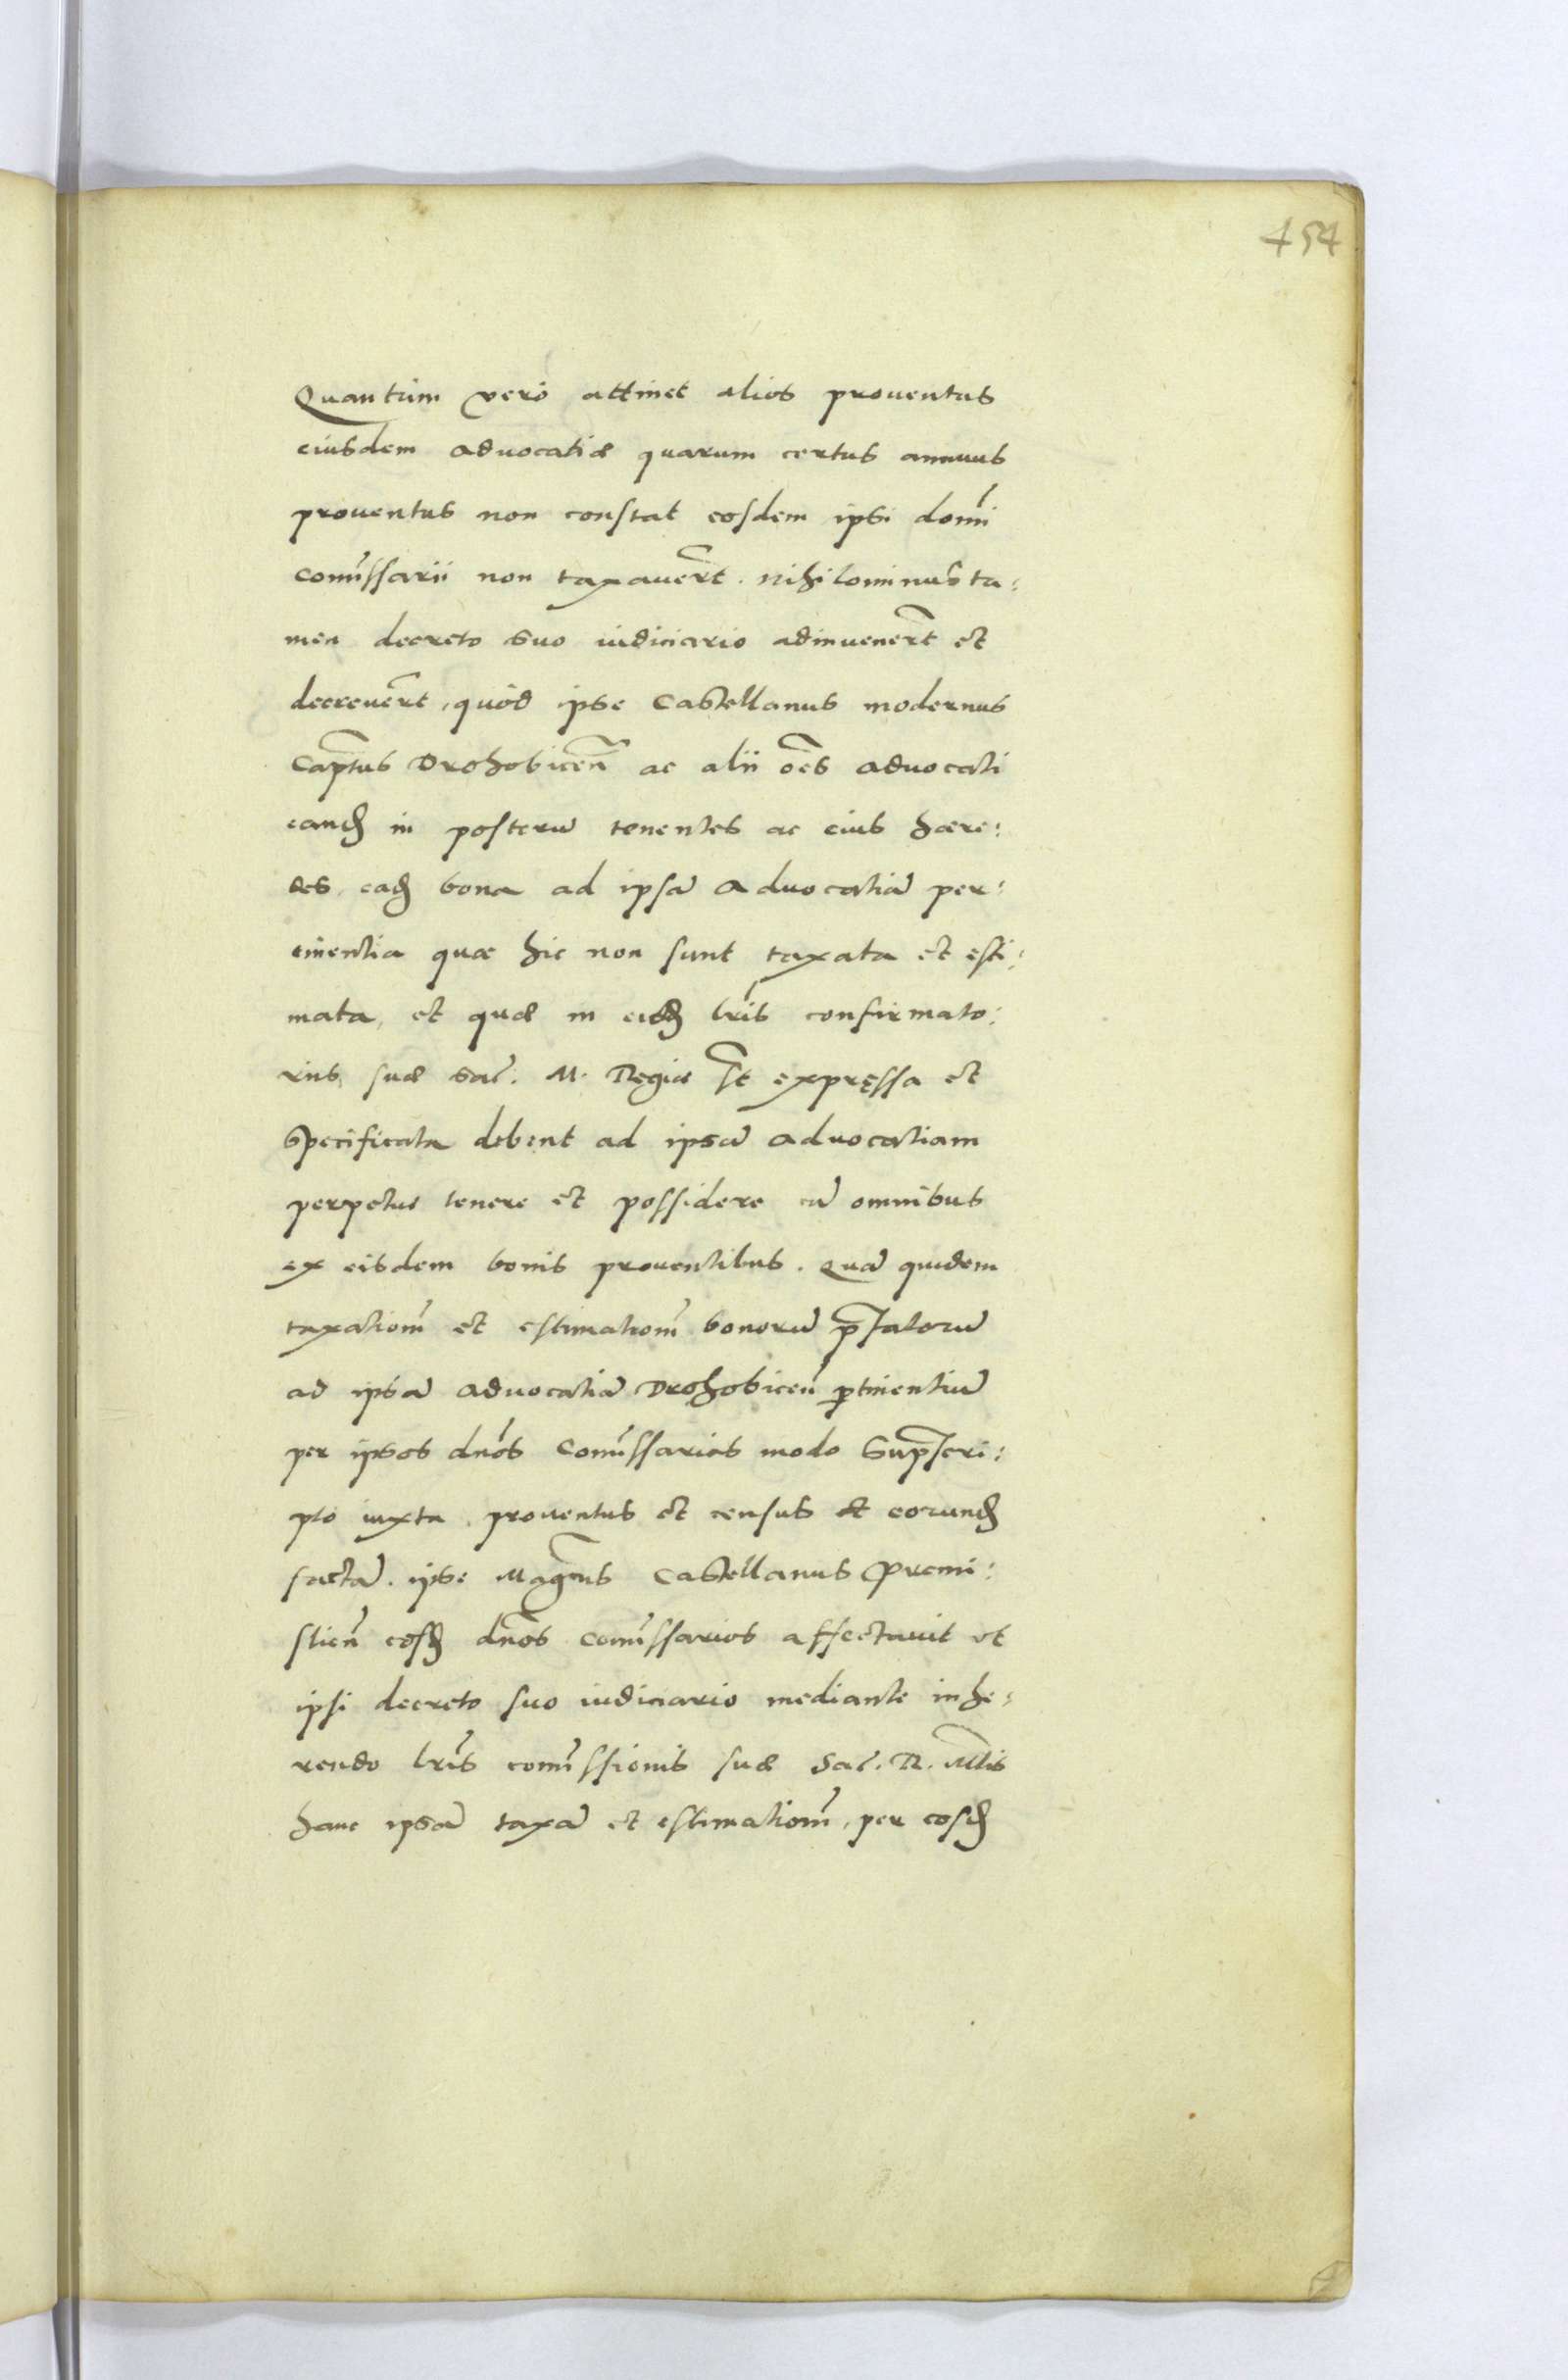 454
Quantum vero attinet alios proventus
eiusdem advocatiæ quarum certus annuus
proventus non constat eosdem ipsi domĩ
comĩssarii non taxavert̃. nihilominus ta:
men decreto suo iudiciario adinvenert̃ et
decrevert̃, quòd ipse Castellanus modernus
Captũs Drohobiceñ ac alii oẽs advocati
eand̃ in posterũ tenentes ac eius hære:
des ead̃ bona ad ipsã advocatiã per:
tinentia quæ hic non sunt taxata et esti:
mata, et quæ in eisd̃ lris̃ confirmato:
riis suæ sac̃. M. Regiæ st̃ expręssa et
specificata debent ad ipsã advocatiam
perpetuo tenere et possidere cũ omnibus
ex eisdem bonis proventibus. Quã quidem
taxationẽ et estimationẽ bonorũ p̃fatorũ
ad ipsã advocatiã Drohobiceñ ptinentiũ
per ipsos dnõs Comĩssarios modo sup̃scri:
pto iuxta proventus et census et eorund̃
factã. ipse Mag̃cus Castellanus Premi:
slieñ eosd̃ dnõs comĩssarios affectavit et
ipsi decreto suo iudiciario mediante inhe:
rendo lris̃ comĩssionis suæ Sac̃. R. Mtĩs
hanc ipsã taxã et estimationẽ, per eosd̃